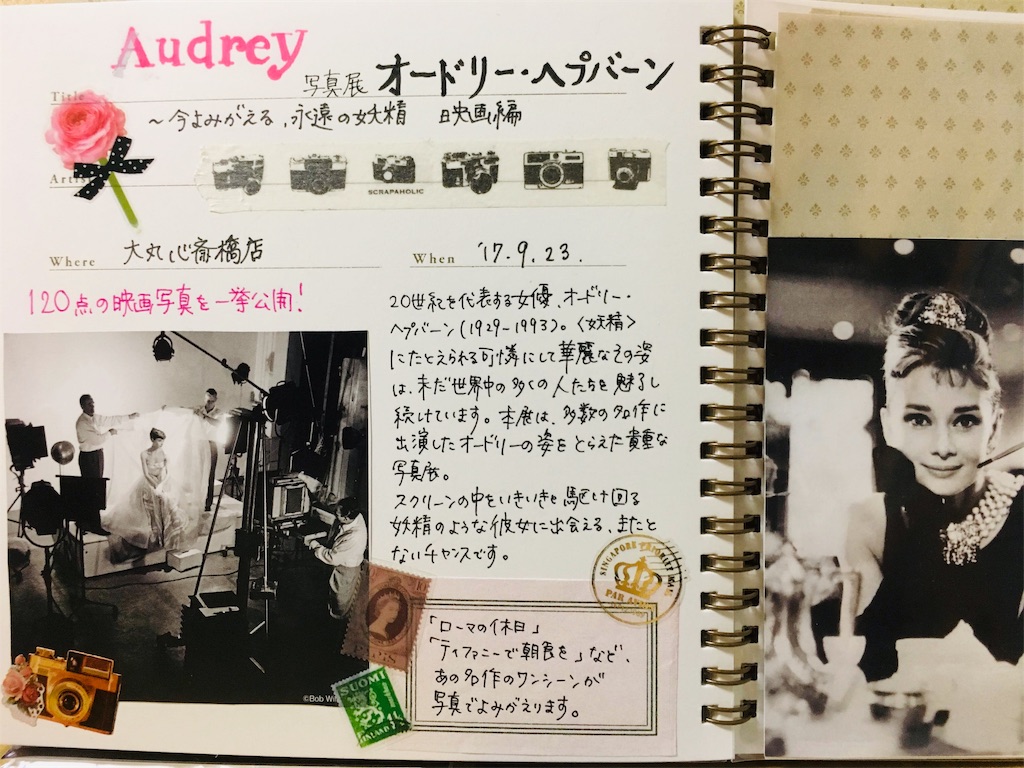 Audrey
Title
写真展 オードリー・ヘプバーン
～今よみがえる、永遠の妖精 映画編
Artist
SCRAPAHOLIC
Where 大丸心斎橋店
When '17.9.23.
120点の映画写真を一挙公開!
20世紀を代表する女優、オードリー・
ヘプバーン(1929~1993)。〈妖精〉
にたとえられる可憐にして華麗なその姿
は、未だ世界中の多くの人たちを魅了し
続けています。本展は、多数の名作に
出演したオードリーの姿をとらえた貴重な
写真展。
スクリーンの中をいきいきと駆け回る
妖精のような彼女に出会える、またと
ないチャンスです。
©Bob Wil
SINGAPORE PRIORITY MAIL
PAR AVION
「ローマの休日」
「ティファニーで朝食を」など、
あの名作のワンシーンが
写真でよみがえります。
SUOMI
FINLAND